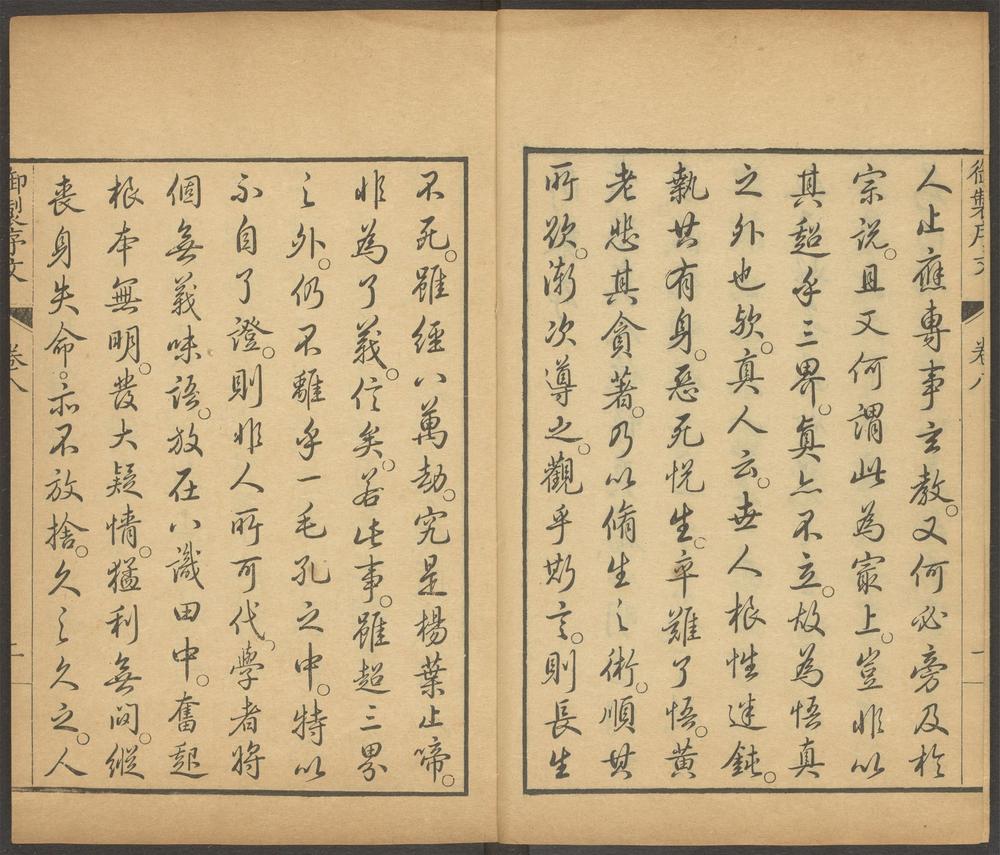 御製序文 卷八 一
人止應專事玄教。又何必旁及於
宗說。且又何謂此為最上。豈非以
其超乎三界。真亦不立。故為悟真
之外也歟。真人云。世人根性迷鈍。
執其有身。惡死悅生。卒難了悟。黃
老悲其貪著。乃以脩生之術。順其
所欲。漸次導之。觀乎斯言。則長生
不死。雖經八萬劫。究是楊葉止啼。
非為了義。信矣。若此事。雖超三界
之外。仍不離乎一毛孔之中。特以
不自了證。則非人所可代。學者將
個無義味語。放在八識田中。奮起
根本無明。發大疑情。猛利無間。縱
喪身失命。亦不放捨。久之久之。人
御製序文 卷八 二